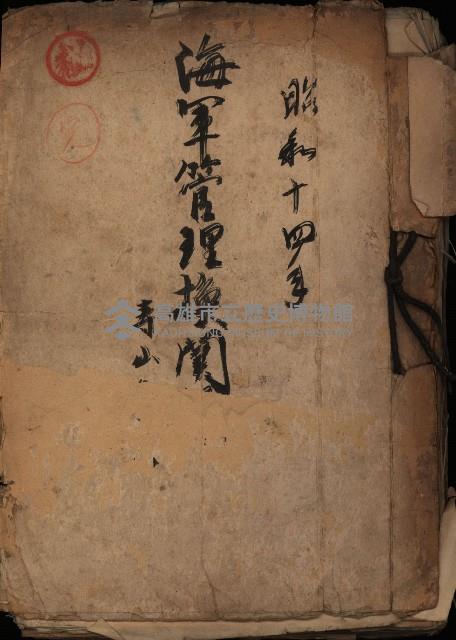 昭和十四年
海軍管理換関
寿山
高雄市立歷史博物館